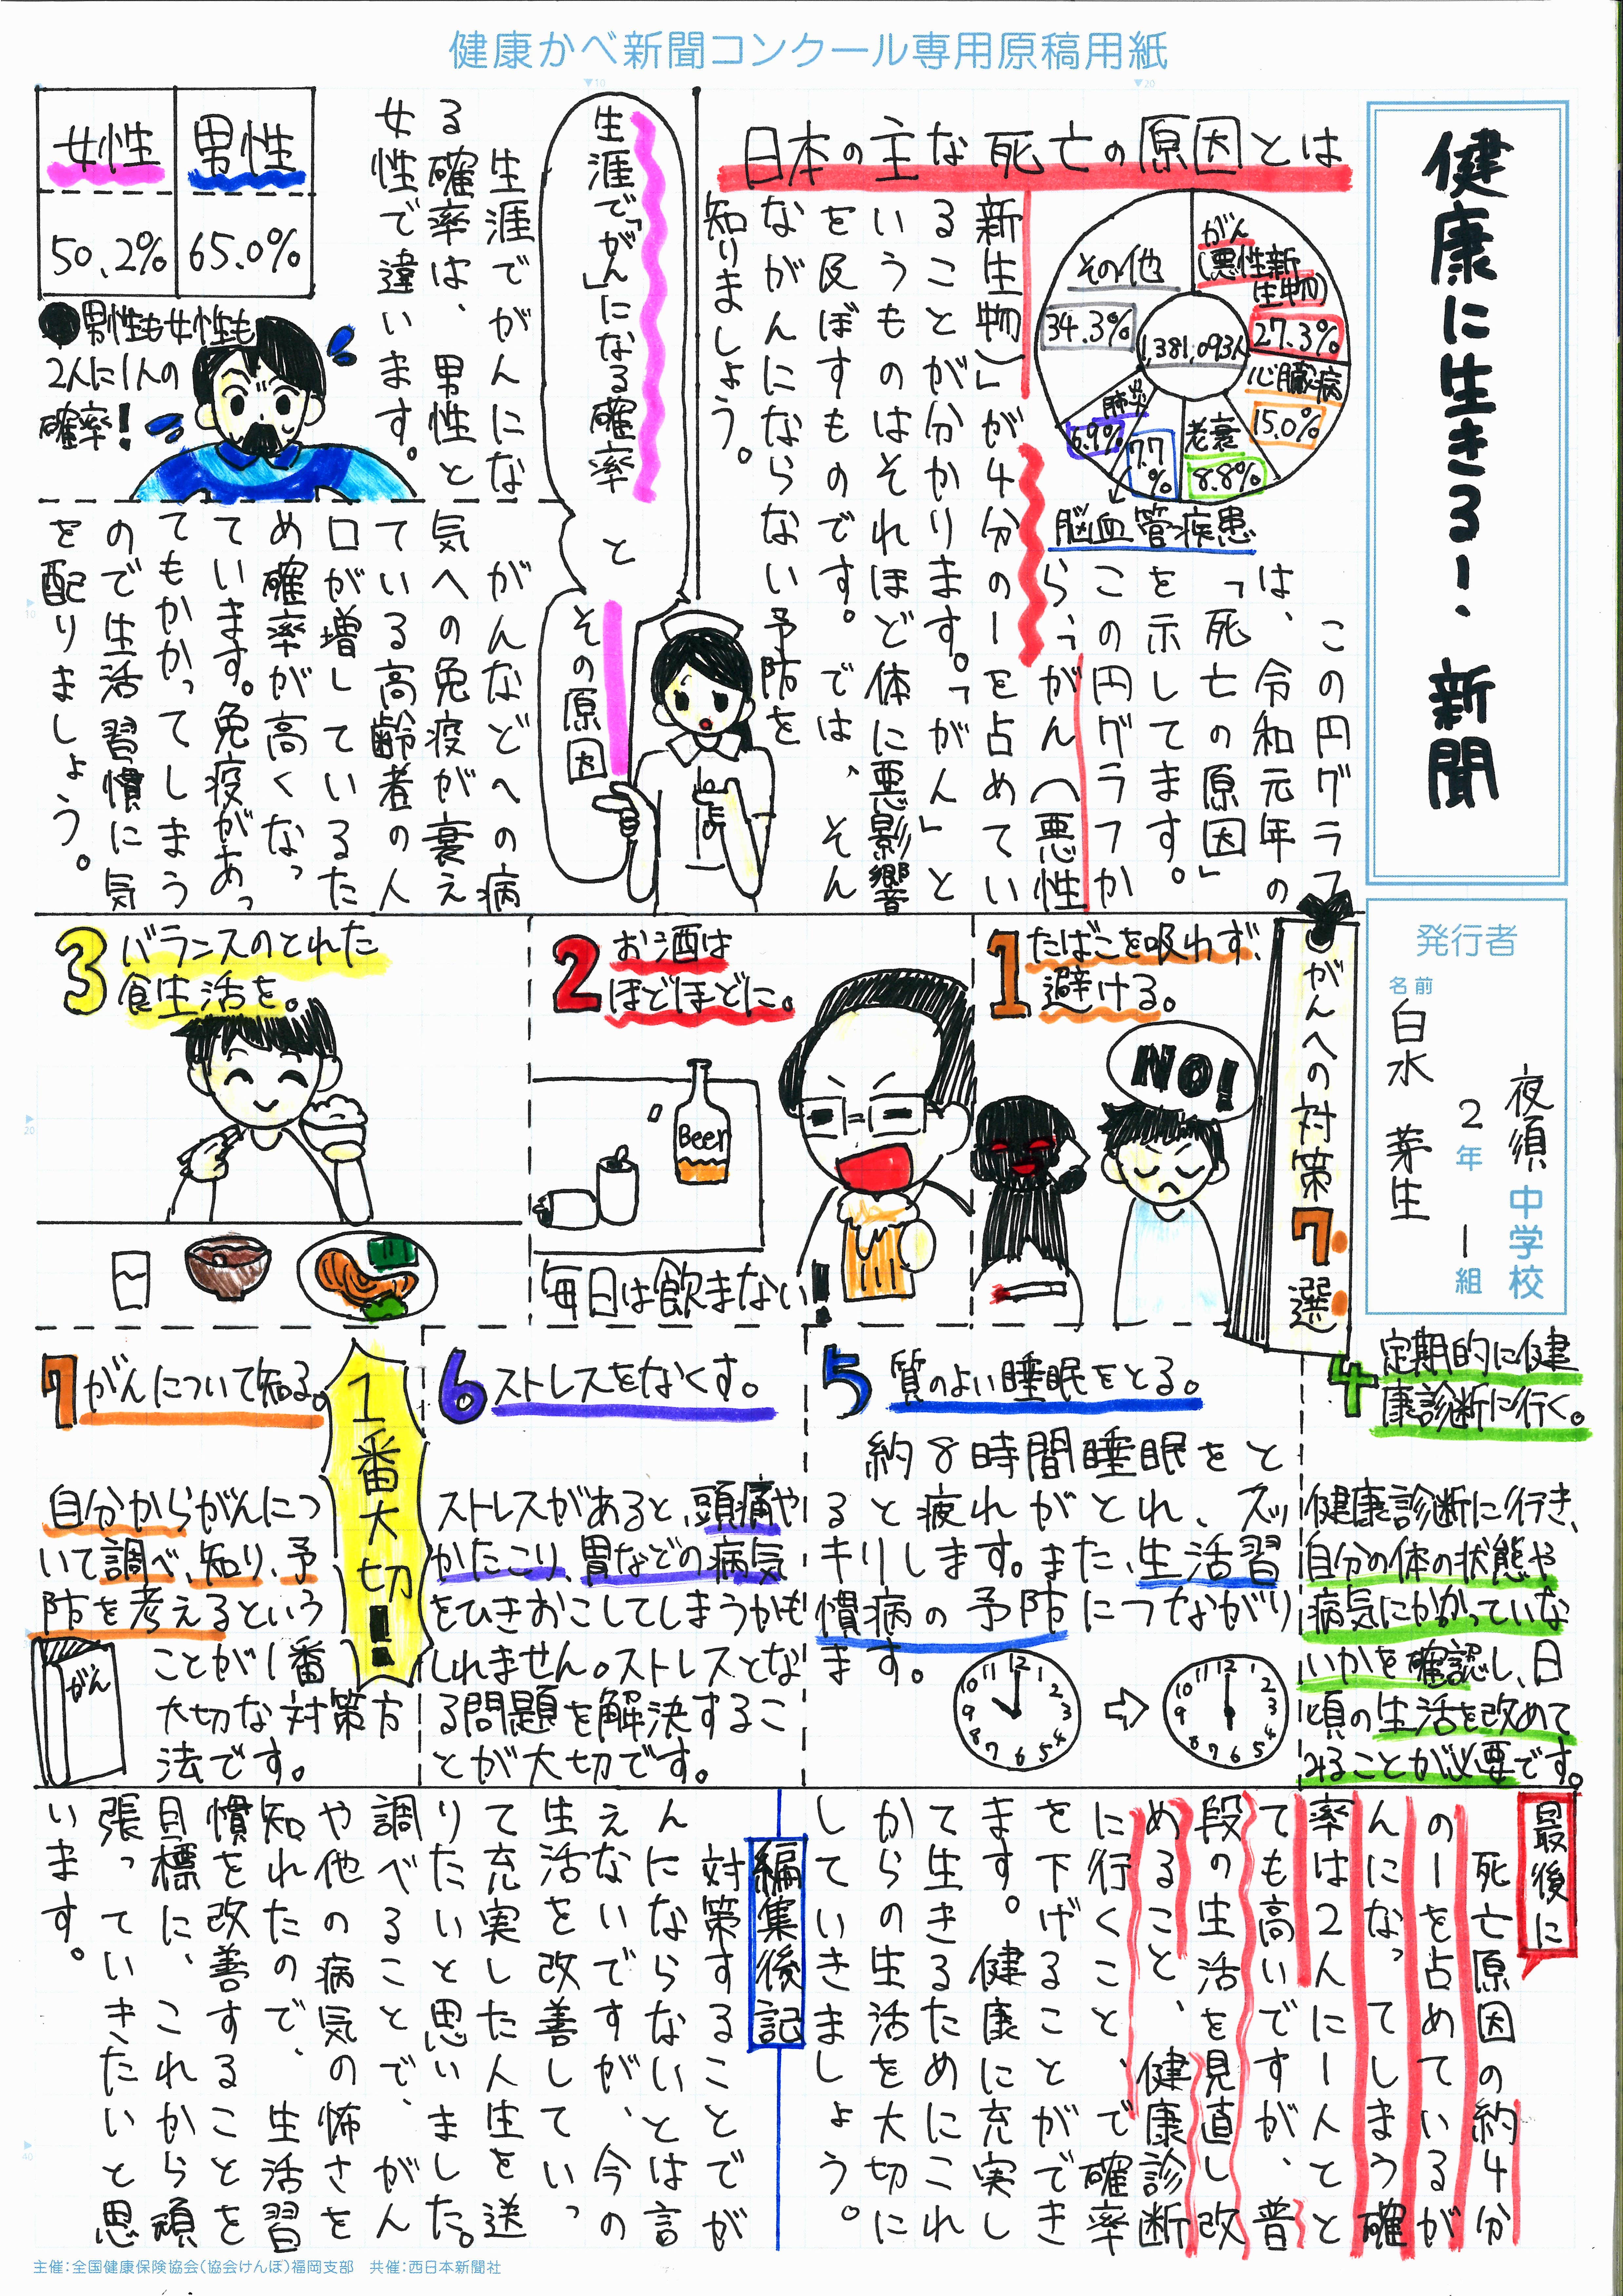 健康かべ新聞コンクール専用原稿用紙
健康に生きる！新聞
発行者
名前
夜須中学校
2年1組
白水 芽生
日本の主な死亡の原因とは
がん
(悪性新
生物)
27.3%
心臓病
15.0%
老衰
8.8%
7.7
%
脳血管疾患
肺炎
6.9%
その他
34.3%
1,381,093人
この円グラフ
は、令和元年の
「死亡の原因」
を示してます。
この円グラフか
ら、「がん(悪性
新生物)」が4分の1を占めてい
ることが分かります。「がん」と
いうものはそれほど体に悪影響
を及ぼすものです。では、そん
ながんにならない予防を
知りましょう。
生涯で「がん」になる確率
と
その原因
生涯でがんにな
る確率は、男性と
女性で違います。
男性
65.0%
女性
50.2%
●男性も女性も
2人に1人の
確率！
がんなどへの病
気への免疫が衰え
ている高齢者の人
口が増しているた
め確率が高くなっ
ています。免疫があっ
てもかかってしまう
ので生活習慣に気
を配りましょう。
がんへの対策7選
1 たばこを吸わず、
避ける。
NO!
2 お酒は
ほどほどに。
Beer
毎日は飲まない！
3 バランスのとれた
食生活を。
4 定期的に健
康診断に行く。
健康診断に行き、
自分の体の状態や
病気にかかっていな
いかを確認し、日
頃の生活を改めて
みることが必要です。
5 質のよい睡眠をとる。
約8時間睡眠をと
ると疲れがとれ、スッ
キリします。また、生活習
慣病の予防につながり
ます。
12 1 2 3 4 5 6 7 8 9 10 11
⇨
12 1 2 3 4 5 6 7 8 9 10 11
6 ストレスをなくす。
ストレスがあると、頭痛や
かたこり、胃などの病気
をひきおこしてしまうかも
しれません。ストレスとな
る問題を解決するこ
とが大切です。
7 がんについて知る。
1番大切！
自分からがんにつ
いて調べ、知り、予
防を考えるという
ことが1番
大切な対策方
法です。
がん
最後に
死亡原因の約4分
の1を占めているが
んになってしまう確
率は2人に1人とと
ても高いですが、普
段の生活を見直し改
めること、健康診断
に行くこと、で確率
を下げることができ
ます。健康に充実し
て生きるためにこれ
からの生活を大切に
していきましょう。
編集後記
対策することでが
んにならないとは言
えないですが、今の
生活を改善していっ
て充実した人生を送
りたいと思いました。
調べることで、がん
や他の病気の怖さを
知れたので、生活習
慣を改善することを
目標に、これから頑
張っていきたいと思
います。
主催：全国健康保険協会(協会けんぽ)福岡支部 共催：西日本新聞社